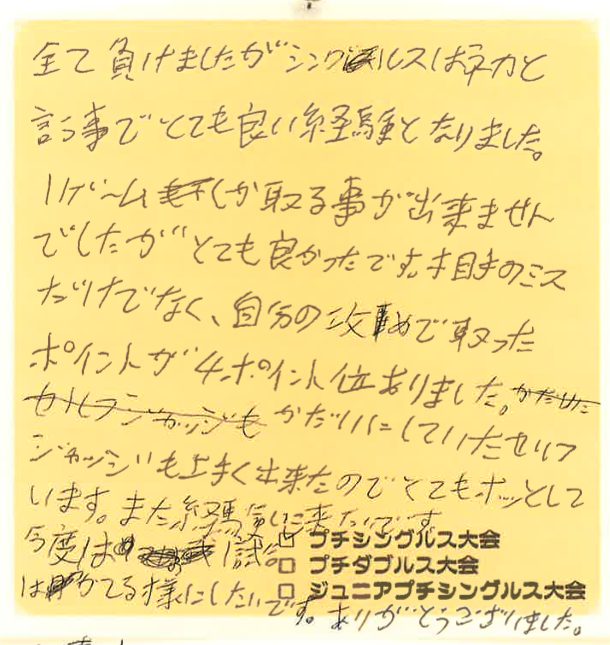 全て負けましたがシングルスはネカと
言う事でとても良い経験となりました。
1ゲームしか取る事が出来ません
でしたがとても良かったです。相手のミス
だけでなく、自分の攻めで取った
ポイントが4ポイント位ありました。
セルフジャッジも かだいにしていたセルフ
ジャッジも上手く出来たのでとてもホッとして
います。また経験しに来たいです。
今度は 試合
は勝てる様にしたいです。ありがとうございました。
プチシングルス大会
プチダブルス大会
ジュニアプチシングルス大会